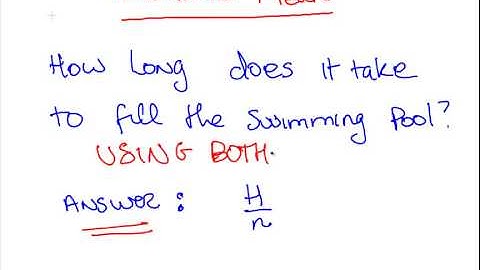 How long does it take
to fill the swimming pool?
USING BOTH.
ANSWER : H
n